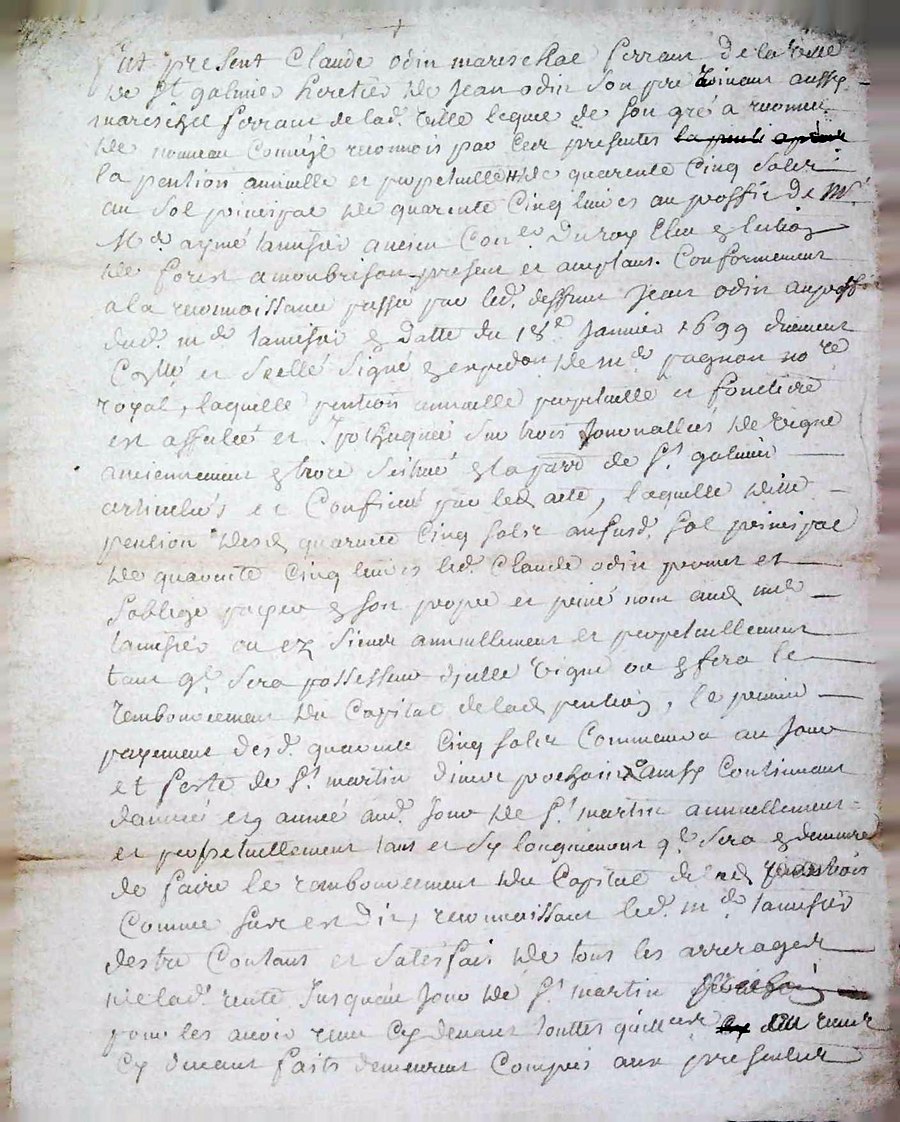 fut present Claude odin mareschal ferrant de la ville
de St galmier heretier de Jean odin son pre vivant aussy
mareschal ferrant de lad. ville lequel de son gré a reconneu
de nouveau comme il reconnois par ces presentes
la pention annuelle et perpetuelle de quarente cinq solz
au sol principal de quarente cinq livres au proffit de Mr
Md aymé lanusier ancien Coner du roy Eleu en l'ellection
de forest a monbrison present et aceptant. Conformement
a la reconnoissance passée par led. deffunt Jean odin au proffit
dud. md lanusier en datte du 18e Janvier 1699 düement
Collé et scellé signé en expedon de md pagnon nore
royal, laquelle pention annuelle perpetuelle et fonciere
est affectée et ipothequée sur trois Journallées de vigne
anciennement en terre scitué en la parre de St galmier
articulés et Confiné par led. acte, laquelle ditte
pention desd. quarente cinq solz aususd. sol principal
de quarente cinq livres led. Claude odin promet et
s'oblige payer en son propre et privé nom aud. md
lanusier ou ez siens annuellement et perpetuellement
tant ql sera possesseur d'icelle vigne ou en fera le
remboursement du Capital de lad. pention, le premier
payement desd. quarente cinq solz Commencera au Jour
et feste de St martin divert prochain ainsy Continuant
d'année en année aud. Jour de St martin annuellement
et perpetuellement tant et sy longuement ql sera en demeure
de faire le remboursement du Capital de lad. pention
Comme sus est dit, reconnoissant led. md lanusier
d'estre Contant et satisfait de tous les arrerages
de lad. rente Jusqu'au Jour de St martin
pour les avoir receu cy devant touttes quittances
cy devant faits demeurent Compris aux presentes